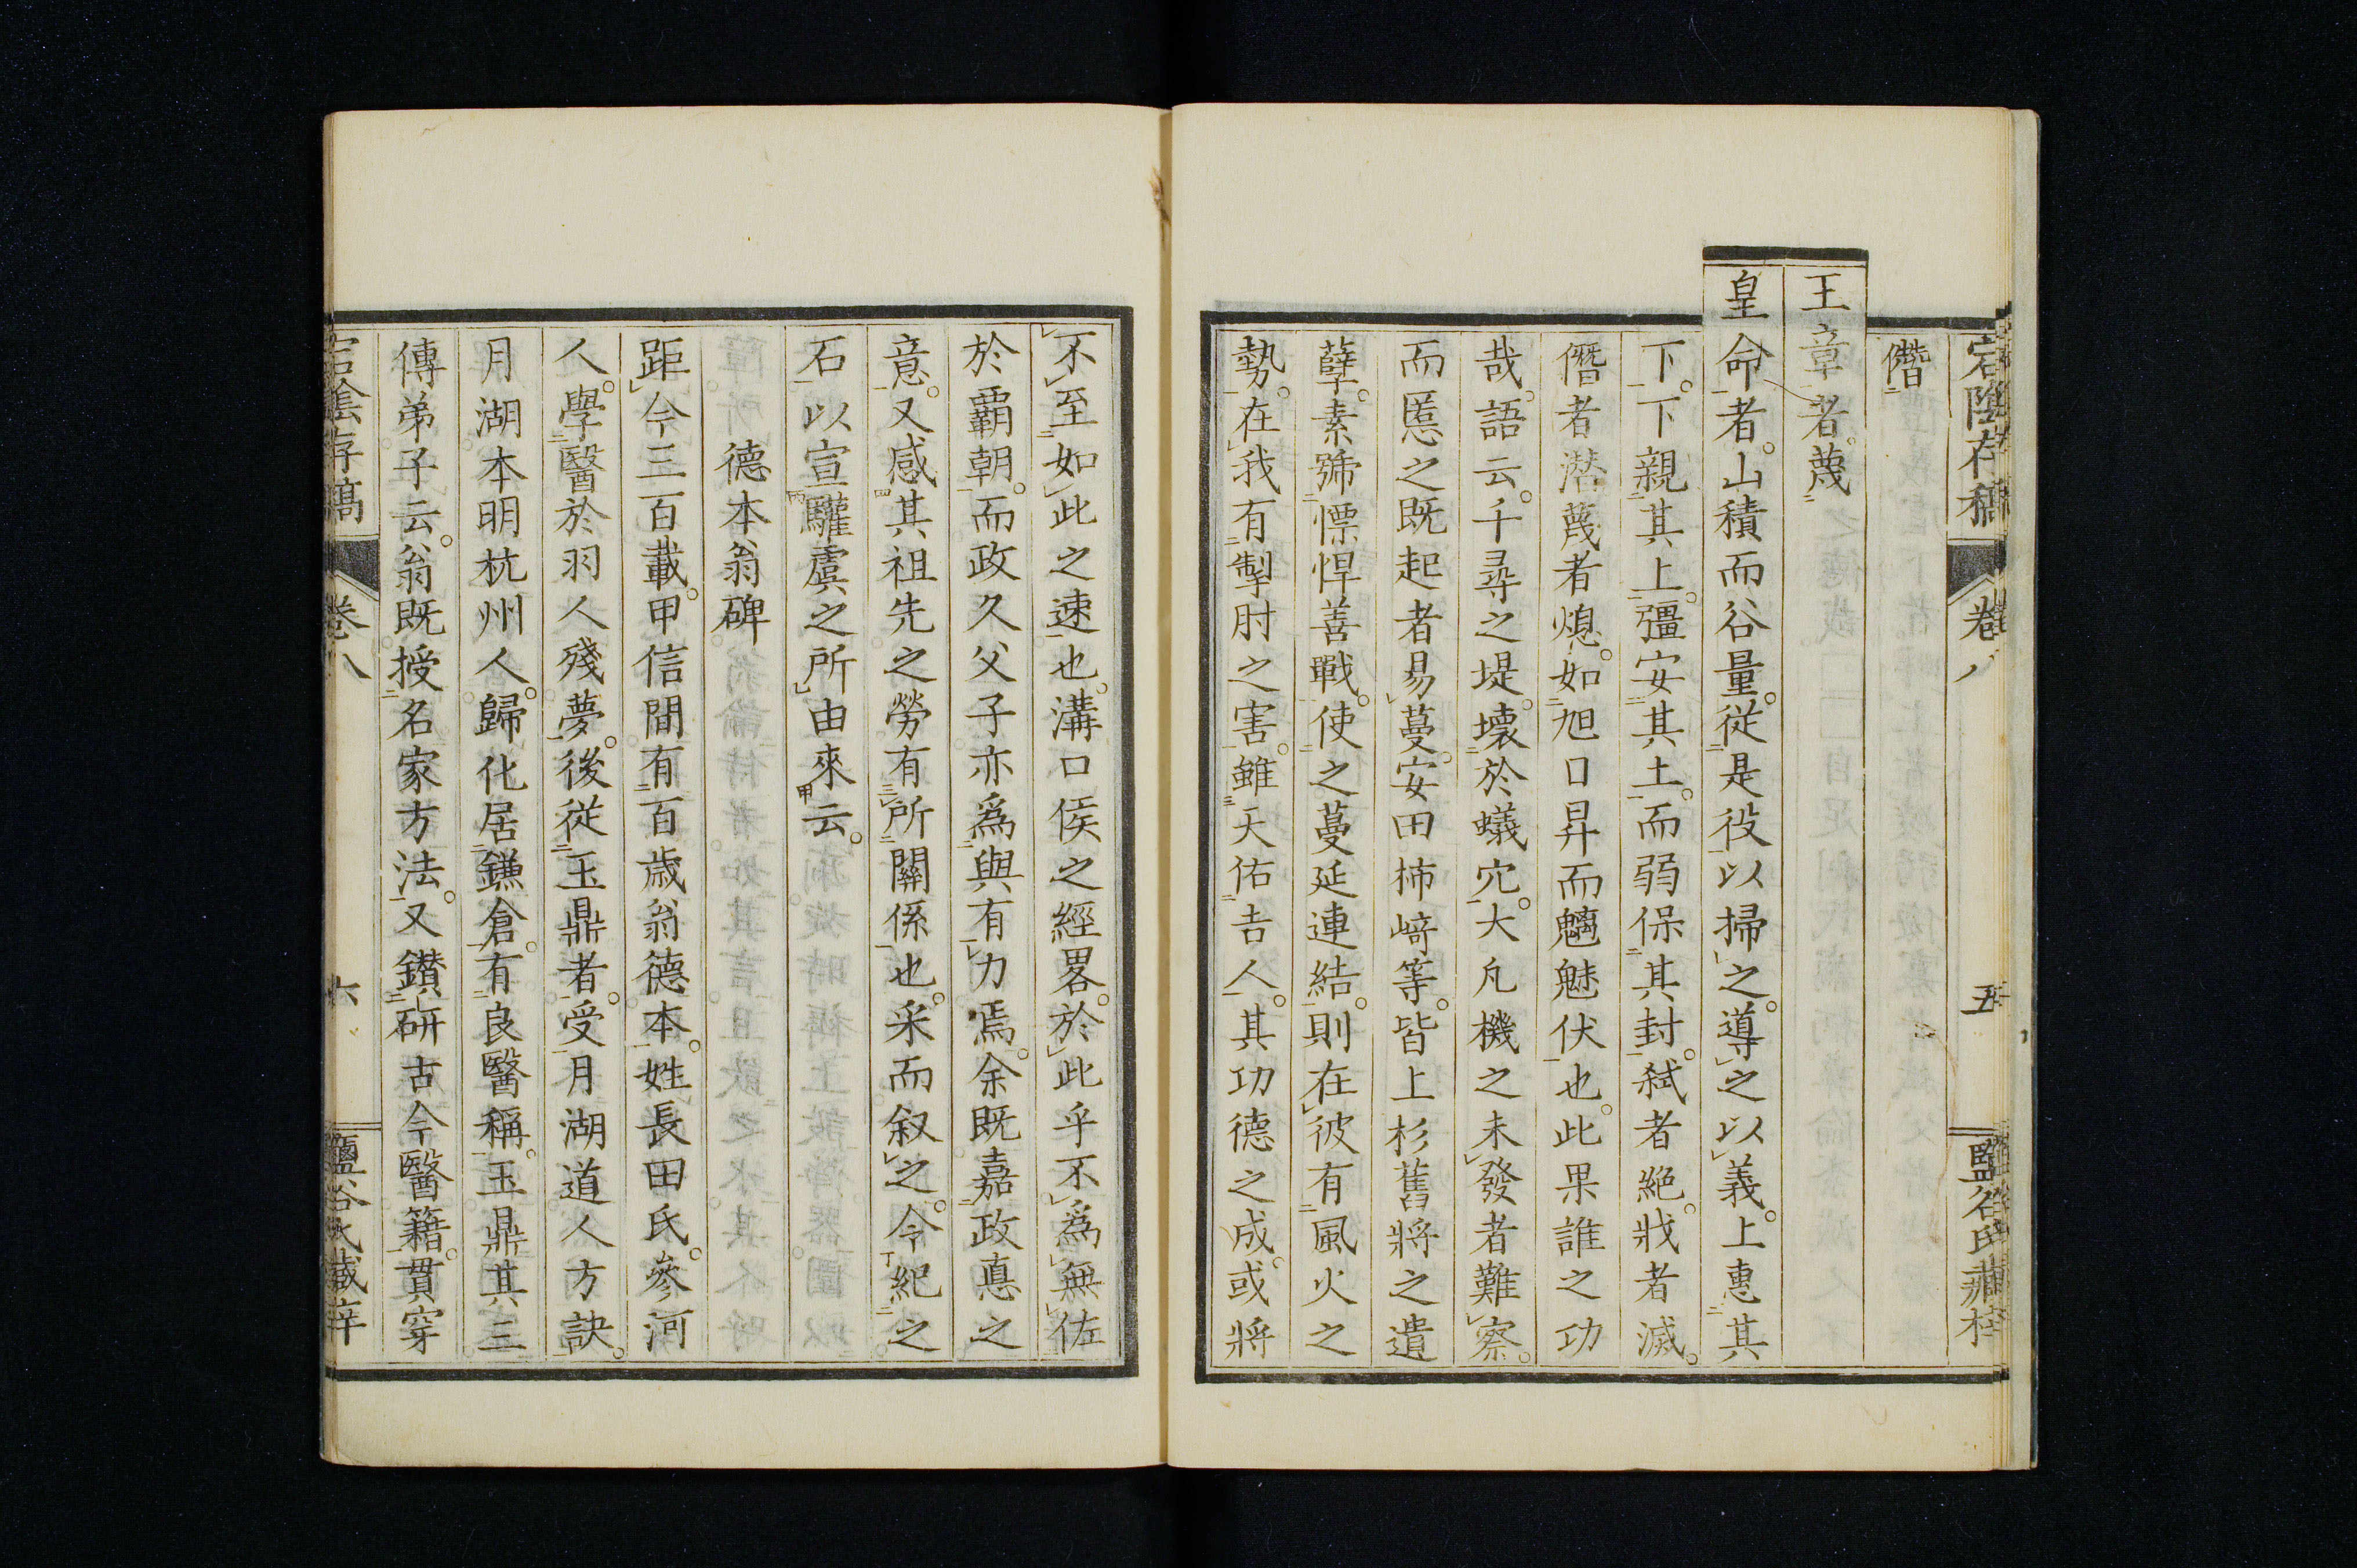 宕陰存稿 卷八 五 鹽谷氏藏梓
僭
王章者。蔑
皇命者。山積而谷量。從是役以掃之。導之以義。上惠其
下。下親其上。彊安其土。而弱保其封。弑者絶。戕者滅。
僭者潜蔑者熄。如旭日昇而魑魅伏也。此果誰之功
哉。語云。千尋之堤。壞於蟻穴。大凡機之未發者難察。
而慝之既起者易蔓。安田柿﨑等。皆上杉舊將之遺
孽。素號慓悍善戰。使之蔓延連結。則在彼有風火之
勢。在我有掣肘之害。雖天佑吉人。其功德之成。或將
不至如此之速也。溝口侯之經畧。於此乎不爲無佐
於覇朝。而政久父子亦爲與有力焉。余既嘉政悳之
意。又感其祖先之勞有所關係也。采而叙之。令紀之
石以宣驩虞之所由來云。
德本翁碑
距今三百載。甲信間有百歳翁德本。姓長田氏。參河
人。學醫於羽人殘夢。後從玉鼎者。受月湖道人方訣。
月湖本明杭州人。歸化居鎌倉。有良醫稱。玉鼎其三
傳弟子云。翁既授名家方法。又鑽研古今醫籍。貫穿
宕陰存稿 卷八 六 鹽谷氏藏梓